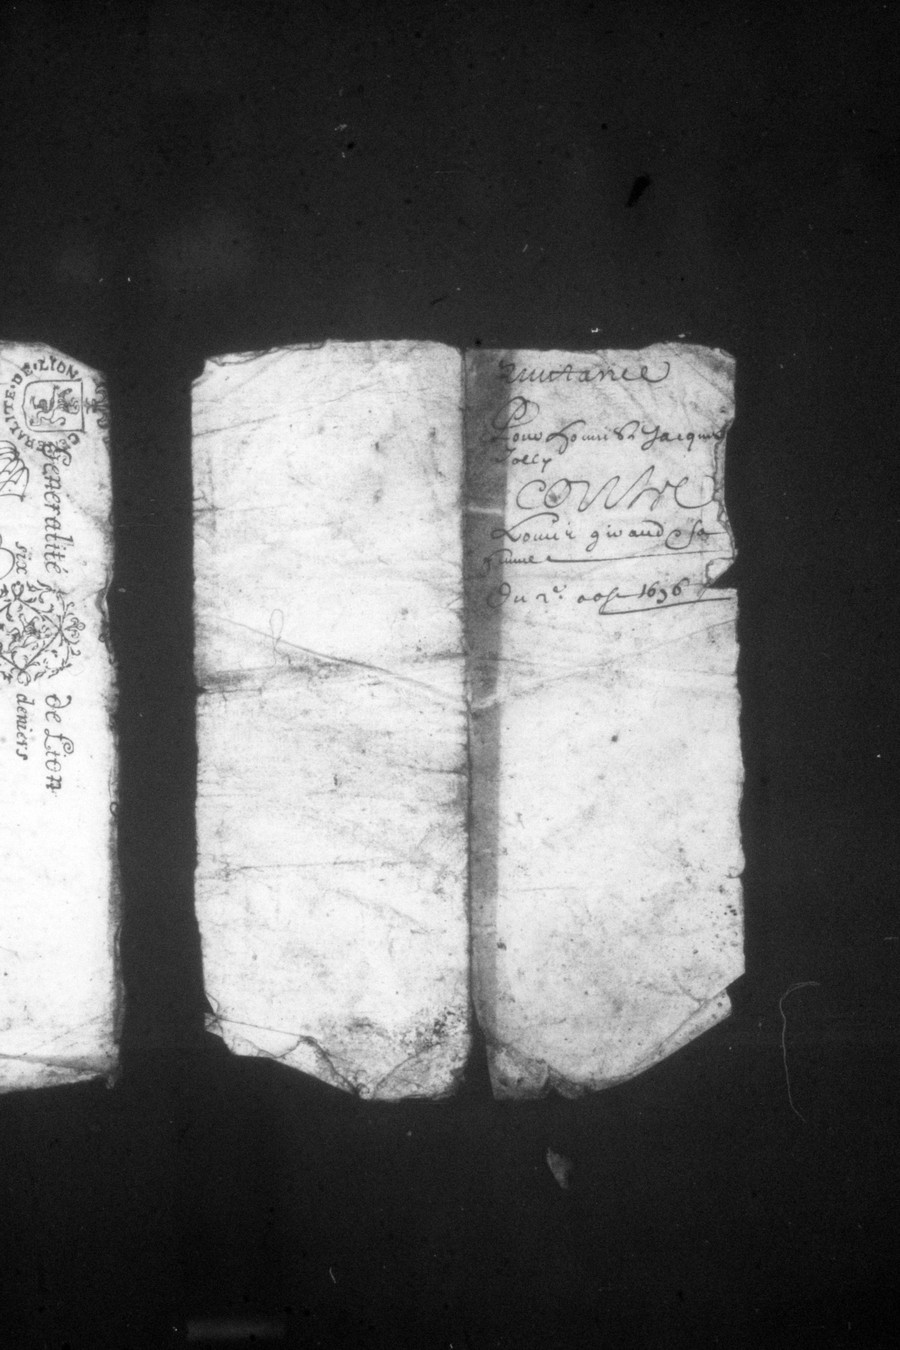 GENERALITE·DE·LION
Generalité de Lion
six deniers
Quittance
Pour honnête Jacques
Jolly
contre
Louis giraud & sa
femme
Du 2e aost 1696